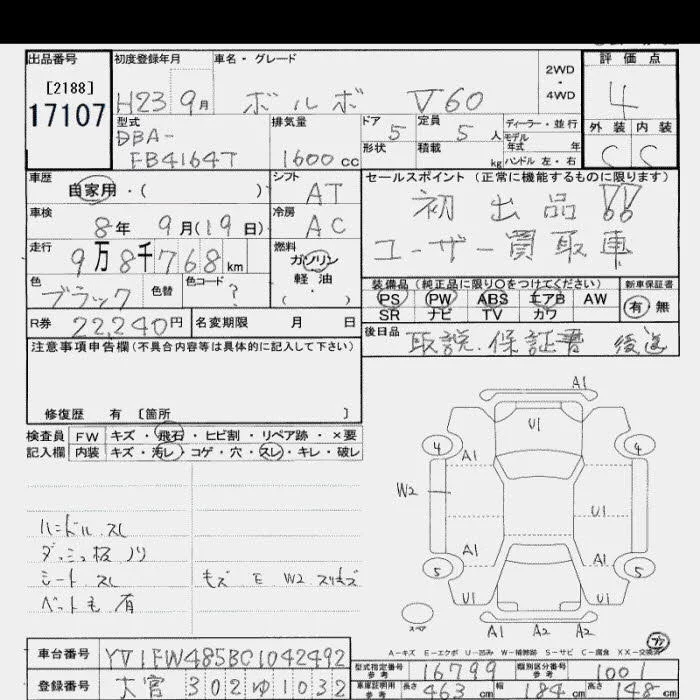 出品番号 初度登録年月 車名・グレード 2WD・4WD 評価点
[2188]
17107
H23 9月 ボルボ V60 4
型式 排気量 ドア 5 定員 5人 ディーラー・並行 外装 内装
モデル年式 年
DBA-
FB4164T 1600cc 形状 積載 kg ハンドル 左・右 C C
車歴 シフト セールスポイント (正常に機能するものに限ります)
自家用・( ) AT 初出品!!
車検 冷房
8年 9月(19日) AC ユーザー買取車
走行 燃料
9万8千768km ガソリン
軽油
( )
装備品(純正品に限り○をつけてください) 新車保証書
色 色替 色コード
ブラック ?
PS PW ABS エアB AW 有 無
SR ナビ TV カワ
R券 22,240円 名変期限 月 日
後日品 取説.保証書 後送
注意事項申告欄(不具合内容等は具体的に記入して下さい)
修復歴 有 [箇所 ]
検査員 FW キズ・飛石・ヒビ割・リペア跡・×要
記入欄 内装 キズ・汚レ・コゲ・穴・スレ・キレ・破レ
A1
U1
4 A1 4
W2
U1
A1 A1
5 5
U1 U1
A1 A2 A2
スペア
ハンドル スレ
ダッシュ板 ノリ
シート スレ
ペット毛 有
A-キズ E-エクボ U-凹み W-補修跡 S-サビ C-腐食 XX-交換済
車台番号 YV1FW485BC1042492
型式指定番号 参考 16799 類別区分番号 参考 1001
登録番号 大宮 302 ゆ 1032
車庫証明用 参考 長さ 463cm 幅 184cm 高さ 148cm